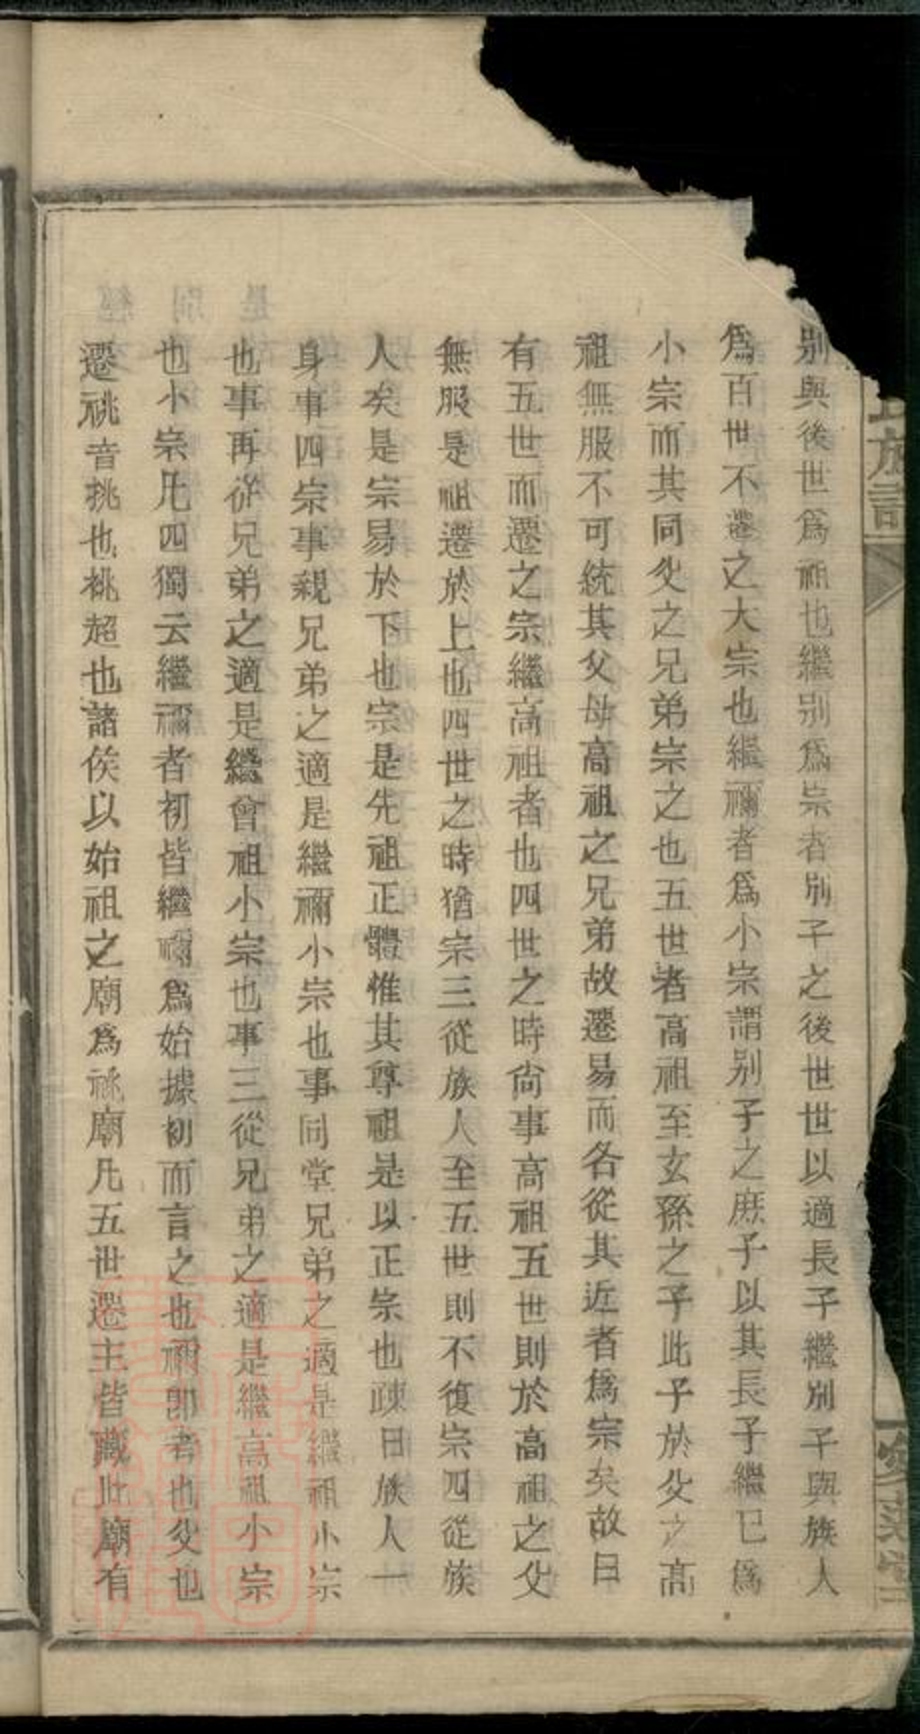 別與後世爲祖也繼別爲宗者別子之後世世以適長子繼別子與族人
爲百世不遷之大宗也繼禰者爲小宗謂別子之庶子以其長子繼已爲
小宗而其同父之兄弟宗之也五世者高祖至玄孫之子此子於父之高
祖無服不可統其父母高祖之兄弟故遷易而各從其近者爲宗矣故曰
有五世而遷之宗繼高祖者也四世之時尙事高祖五世則於高祖之父
無服是祖遷於上也四世之時猶宗三從族人至五世則不復宗四從族
人矣是宗易於下也宗是先祖正體惟其尊祖是以正宗也疎曰族人一
身事四宗事親兄弟之適是繼禰小宗也事同堂兄弟之適是繼祖小宗
也事再從兄弟之適是繼會祖小宗也事三從兄弟之適是繼高祖小宗
也小宗凡四獨云繼禰者初皆繼禰爲始據初而言之也禰卽者也父也
遷祧音挑也祧超也諸侯以始祖之廟爲祧廟凡五世遷主皆藏此廟有
族譜